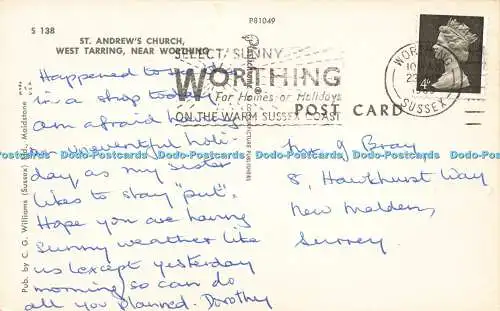 S 138
P81049
ST. ANDREW'S CHURCH,
WEST TARRING, NEAR WORTHING
SELECT SUNNY
WORTHING
For Homes or Holidays
ON THE WARM SUSSEX COAST
WORTHING
SUSSEX
4D
POST CARD
Pub. by C. G. Williams (Sussex) Ltd., Maidstone
Happened to
in a shop today
am afraid having
uneventful holi-
day as my sister
likes to stay "put".
Hope you are having
sunny weather like
us (except yesterday
morning so can do
all you planned. Dorothy
Mr. J Bray
8, Hawkhurst Way
New Malden,
Surrey
Dodo-Postcards Dodo-Postcards Dodo-Postcards Dodo-Postcards